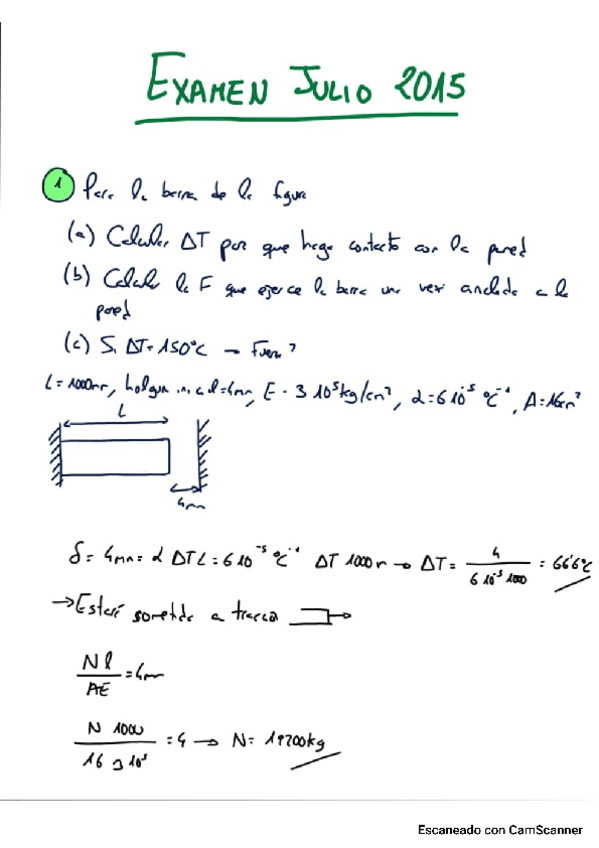 EXAMEN JULIO 2015
1 Para la barra de la figura
(a) Calcular ΔT por que haga contacto con la pared
(b) Calcular la F que ejerce la barra una vez anclada a la
pared
(c) Si ΔT=150°C → Fuerz?
L=1000mm, holgura inicial=4mm, E=3 10⁵kg/cm², α=6 10⁻⁵ °C⁻¹, A=16cm²
L
4mm
δ=4mm=α ΔT L=6 10⁻⁵ °C⁻¹ ΔT 1000m → ΔT= 4 / 6 10⁻⁵ 1000 = 66'6°C
→Estará sometida a tracción
N l / AE =4mm
N 1000 / 16 3 10⁵ =4 → N= 19200kg
Escaneado con CamScanner